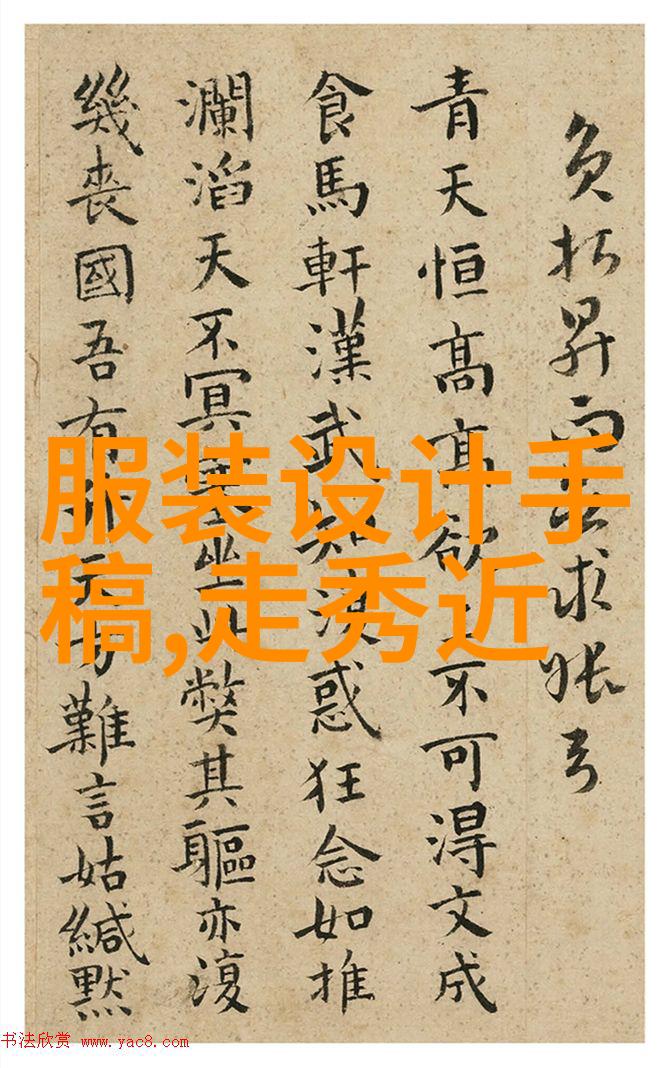 负昇求
青天恒高高欲上不可得文成
食馬軒漢武惑狂念如推
瀾滔天不冥坐此弊其軀亦復
幾喪國吾有難言姑緘默
服装设计手
稿,走秀近
书法欣赏 www.yac8.com